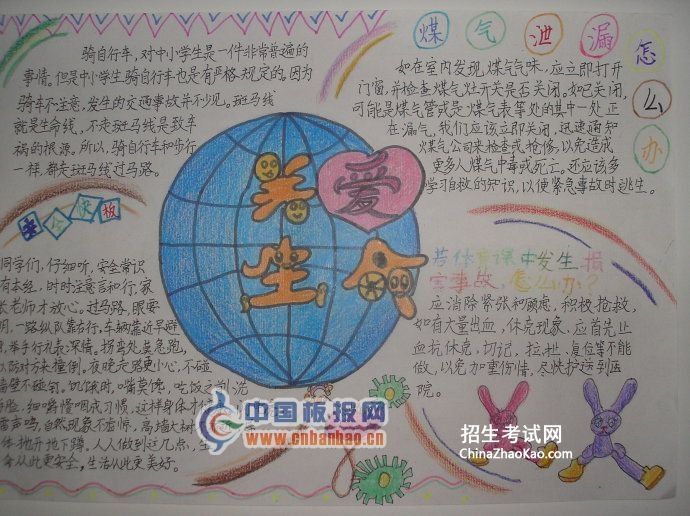 骑自行车，对中小学生是一件非常普遍的
事情。但是中小学生骑自行车也是有严格规定的。因为
骑车不注意，发生的交通事故并不少见。斑马线
就是生命线，不走斑马线是致车
祸的根源。所以，骑自行车和步行
一样，都走斑马线过马路。
关爱
生命
煤气泄漏怎么办
如在室内发现煤气气味，应立即打开
门窗，并检查煤气灶开关是否关闭。如已关闭，
可能是煤气管或是煤气表等处的其中一处正
在漏气，我们应该立即关闭，迅速通知
煤气公司来检查或抢修，以免造成
更多人煤气中毒或死亡。还应该多
学习自救的知识，以使紧急事故时逃生。
板
同学们，仔细听，安全常识
有本经，时时注意言和行，家
长老师才放心。过马路，眼要
明，一路纵队靠右行，车辆靠近早避
举手行礼表深情。拐弯处莫急跑，
以防对方来撞倒，夜晚走路更小心，不碰
墙壁不碰钉。饥饿时，嘴莫馋，吃饭之前洗
细嚼慢咽成习惯，这样身体才
雷声鸣，自然现象不虚惊，高墙大树
体地开地下蹲。人人做到这几点，生
命从此更安全，生活从此更美好。
若体育课中发生损
害事故，怎么办？
应消除紧张和顾虑，积极抢救，
如有大量出血，休克现象，应首先止
血抗休克，切记，拉扯，复位等不能
做，以免加重伤情，尽快护送到医
院。
中国板报网
www.cnbanbao.cn
招生考试网
ChinaZhaoKao.com